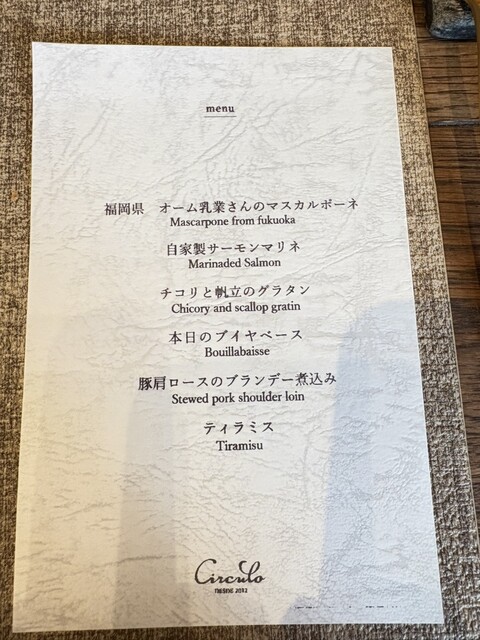 menu
福岡県　オーム乳業さんのマスカルポーネ
Mascarpone from fukuoka
自家製サーモンマリネ
Marinaded Salmon
チコリと帆立のグラタン
Chicory and scallop gratin
本日のブイヤベース
Bouillabaisse
豚肩ロースのブランデー煮込み
Stewed pork shoulder loin
ティラミス
Tiramisu
Circulo